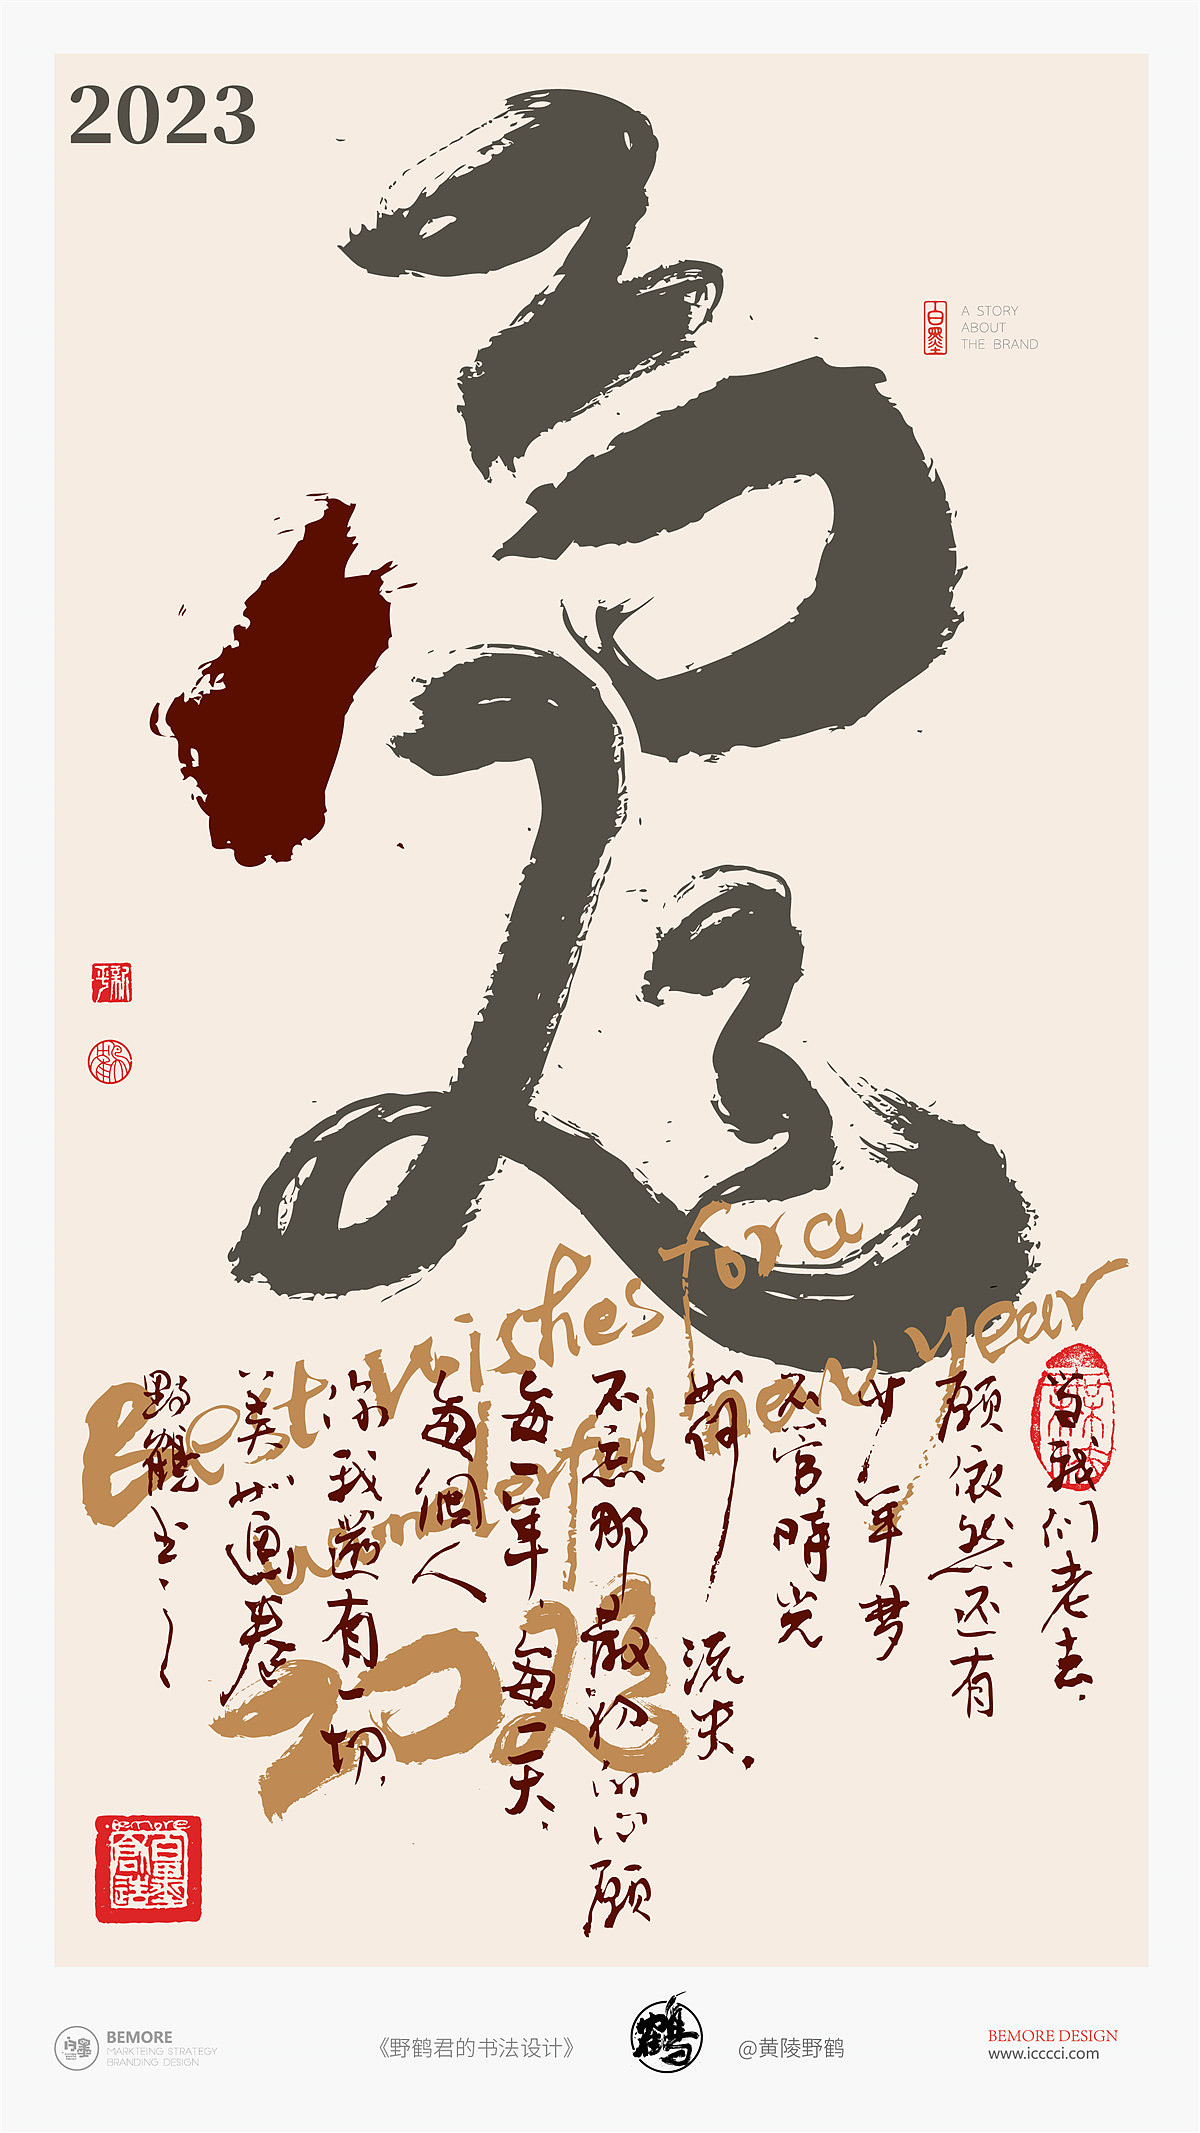 2023
A STORY
ABOUT
THE BRAND
百墨
Best wishes for a
wonderful new year
2023
当我们老去，
愿依然还有
少年梦
不管時光
如何
流失。
不忘那最初的心愿
每一年，每一天，
每個人
你我還有一切，
美如画卷
野鶴书
Bemore
百墨
創造
BEMORE
MARKTEING STRATEGY
BRANDING DESIGN
《野鹤君的书法设计》
鶴
@黄陵野鹤
BEMORE DESIGN
www.icccci.com